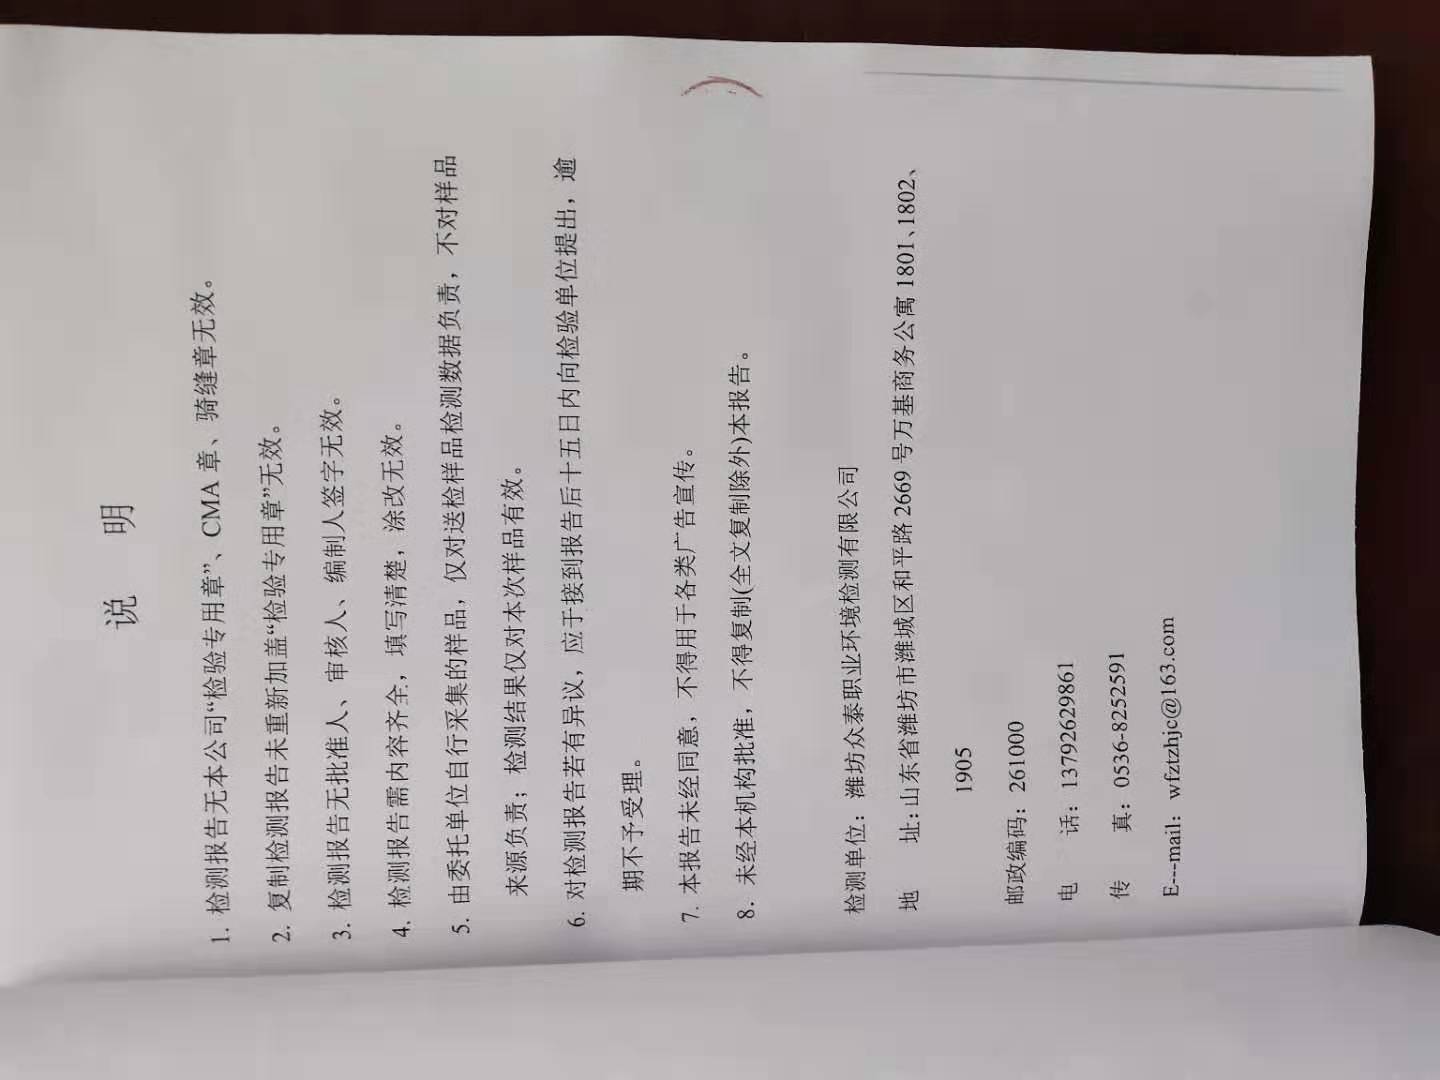 说 明
1. 检测报告无本公司“检验专用章”、CMA 章、骑缝章无效。
2. 复制检测报告未重新加盖“检验专用章”无效。
3. 检测报告无批准人、审核人、编制人签字无效。
4. 检测报告需内容齐全，填写清楚，涂改无效。
5. 由委托单位自行采集的样品，仅对送检样品检测数据负责，不对样品
来源负责；检测结果仅对本次样品有效。
6. 对检测报告若有异议，应于接到报告后十五日内向检验单位提出，逾
期不予受理。
7. 本报告未经同意，不得用于各类广告宣传。
8. 未经本机构批准，不得复制(全文复制除外)本报告。
检测单位：潍坊众泰职业环境检测有限公司
地 址:山东省潍坊市潍城区和平路 2669 号万基商务公寓 1801、1802、
1905
邮政编码：261000
电 话：13792629861
传 真：0536-8252591
E---mail：wfztzhjc@163.com